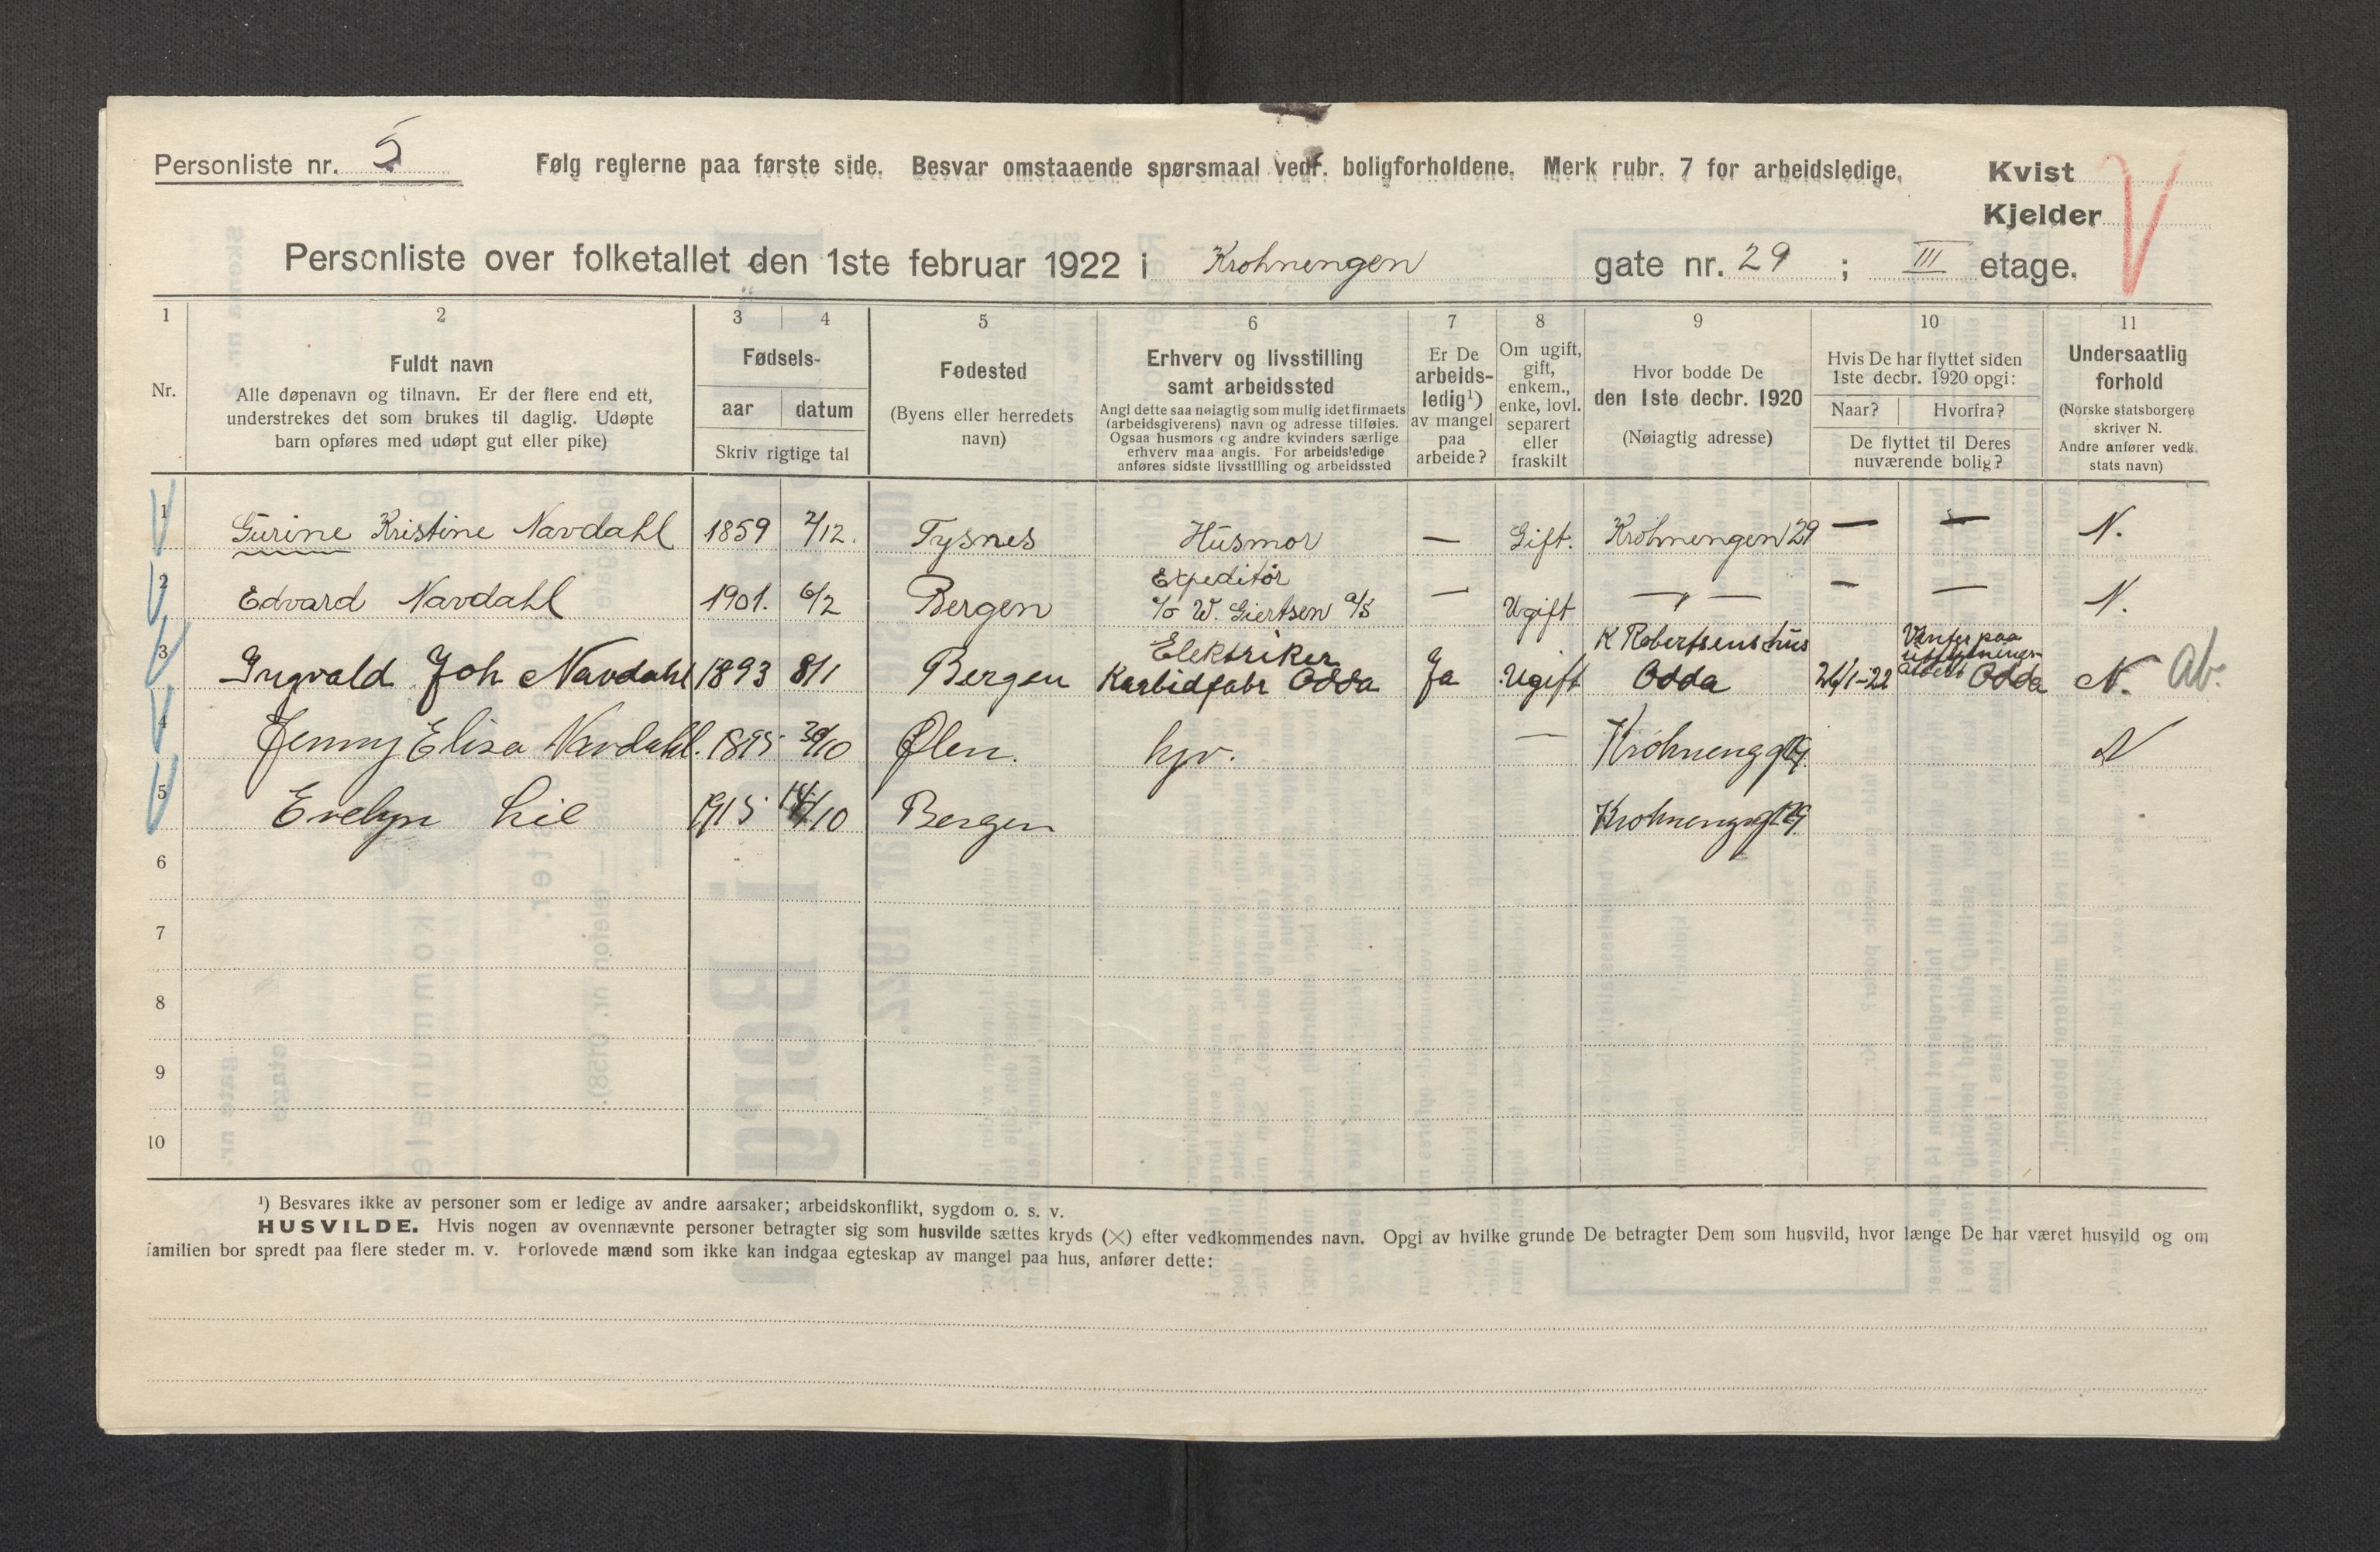 Personliste nr. 5 Følg reglerne paa første side. Besvar omstaaende spørsmaal vedr. boligforholdene. Merk rubr. 7 for arbeidsledige. Kvist
Kjelder
Personliste over folketallet den 1ste februar 1922 i Krohnengen gate nr. 29 ; III etage.
1 2 3 4 5 6 7 8 9 10 11
Nr.
Fuldt navn
Alle døpenavn og tilnavn. Er der flere end ett,
understrekes det som brukes til daglig. Udøpte
barn opføres med udøpt gut eller pike)
Fødsels-
aar datum
Skriv rigtige tal
Fødested
(Byens eller herredets
navn)
Erhverv og livsstilling
samt arbeidssted
Angi dette saa nøiagtig som mulig idet firmaets
(arbeidsgiverens) navn og adresse tilføies.
Ogsaa husmors og andre kvinders særlige
erhverv maa angis. For arbeidsledige
anføres sidste livsstilling og arbeidssted
Er De
arbeids-
ledig¹)
av mangel
paa
arbeide?
Om ugift,
gift,
enkem.,
enke, lovl.
separert
eller
fraskilt
Hvor bodde De
den 1ste decbr. 1920
(Nøiagtig adresse)
Hvis De har flyttet siden
1ste decbr. 1920 opgi:
Naar? Hvorfra?
De flyttet til Deres
nuværende bolig?
Undersaatlig
forhold
(Norske statsborgere
skriver N.
Andre anfører vedk.
stats navn)
1 Gurine Kristine Navdahl 1859 2/12. Tysnes Husmor — Gift. Krohnengen 29 — — N.
2 Edvard Navdahl 1901. 6/2 Bergen Expeditør
a/o W. Giertsen a/s — Ugift — " — — — N.
3 Ingvald Joh Navdahl 1893 8/1 Bergen Elektriker
Karbidfabr Odda Ja Ugift K Robertsens hus
Odda 26/1-22 Venter paa
Odda N. Ab.
4 Jenny Elisa Navdahl. 1895 30/10 Ølen. hjv. — Krohnengg 29. N
5 Evelyn Lie 1915 14/10 Bergen Krohnengsg 29.
6
7
8
9
10
¹) Besvares ikke av personer som er ledige av andre aarsaker; arbeidskonflikt, sygdom o. s. v.
HUSVILDE. Hvis nogen av ovennævnte personer betragter sig som husvilde sættes kryds (×) efter vedkommendes navn. Opgi av hvilke grunde De betragter Dem som husvild, hvor længe De har været husvild og om
familien bor spredt paa flere steder m. v. Forlovede mænd som ikke kan indgaa egteskap av mangel paa hus, anfører dette: